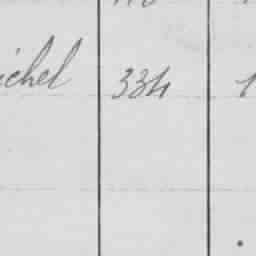 ichel 334 1